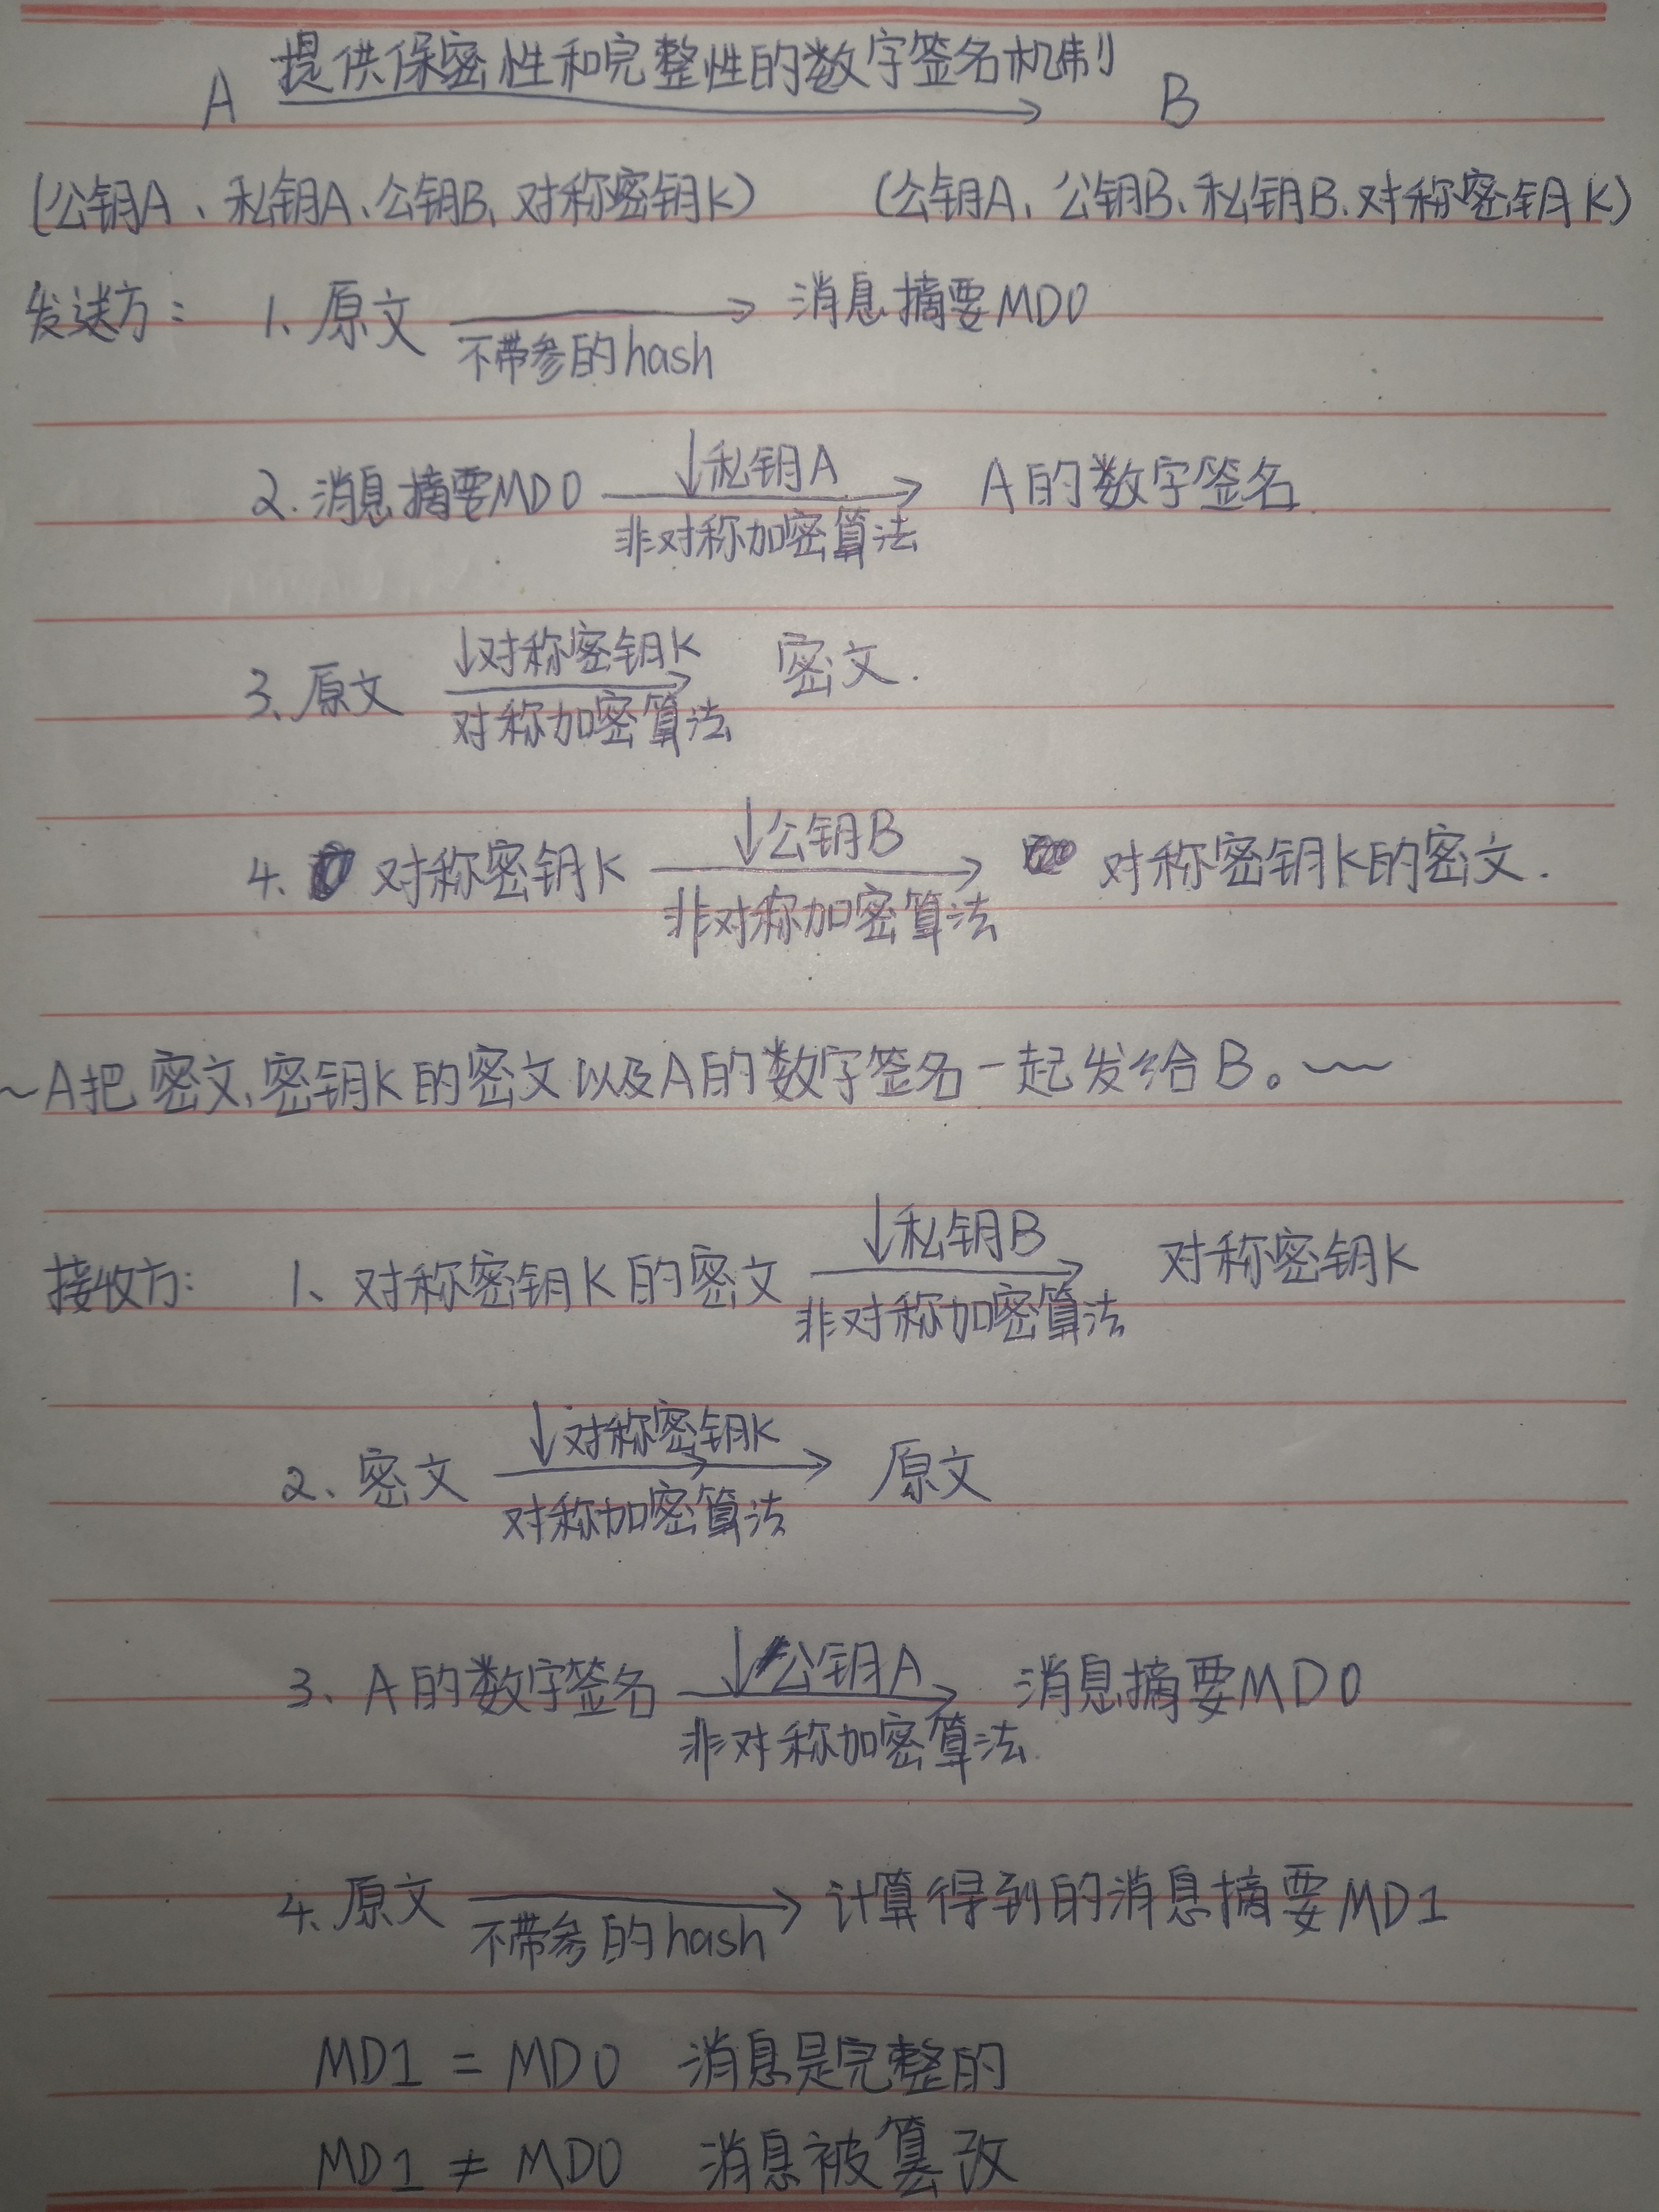 提供保密性和完整性的数字签名机制
A → B
(公钥A、私钥A、公钥B、对称密钥K) (公钥A、公钥B、私钥B、对称密钥K)
发送方： 1、原文 → 消息摘要MD0
不带参的hash
↓私钥A
2.消息摘要MD0 → A的数字签名.
非对称加密算法
↓对称密钥K
3、原文 → 密文.
对称加密算法
↓公钥B
4. 对称密钥K → 对称密钥K的密文.
非对称加密算法
~A把密文、密钥K的密文以及A的数字签名一起发给B。~~
↓私钥B
接收方: 1、对称密钥K的密文 → 对称密钥K
非对称加密算法
↓对称密钥K
2、密文 → 原文
对称加密算法
↓公钥A
3、A的数字签名 → 消息摘要MD0
非对称加密算法.
4.原文 → 计算得到的消息摘要MD1
不带参的hash
MD1 = MD0 消息是完整的
MD1 ≠ MD0 消息被篡改